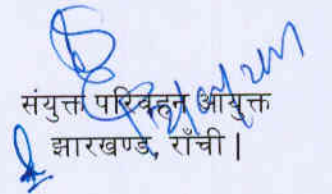 संयुक्त परिवहन आयुक्त
झारखण्ड, राँची |